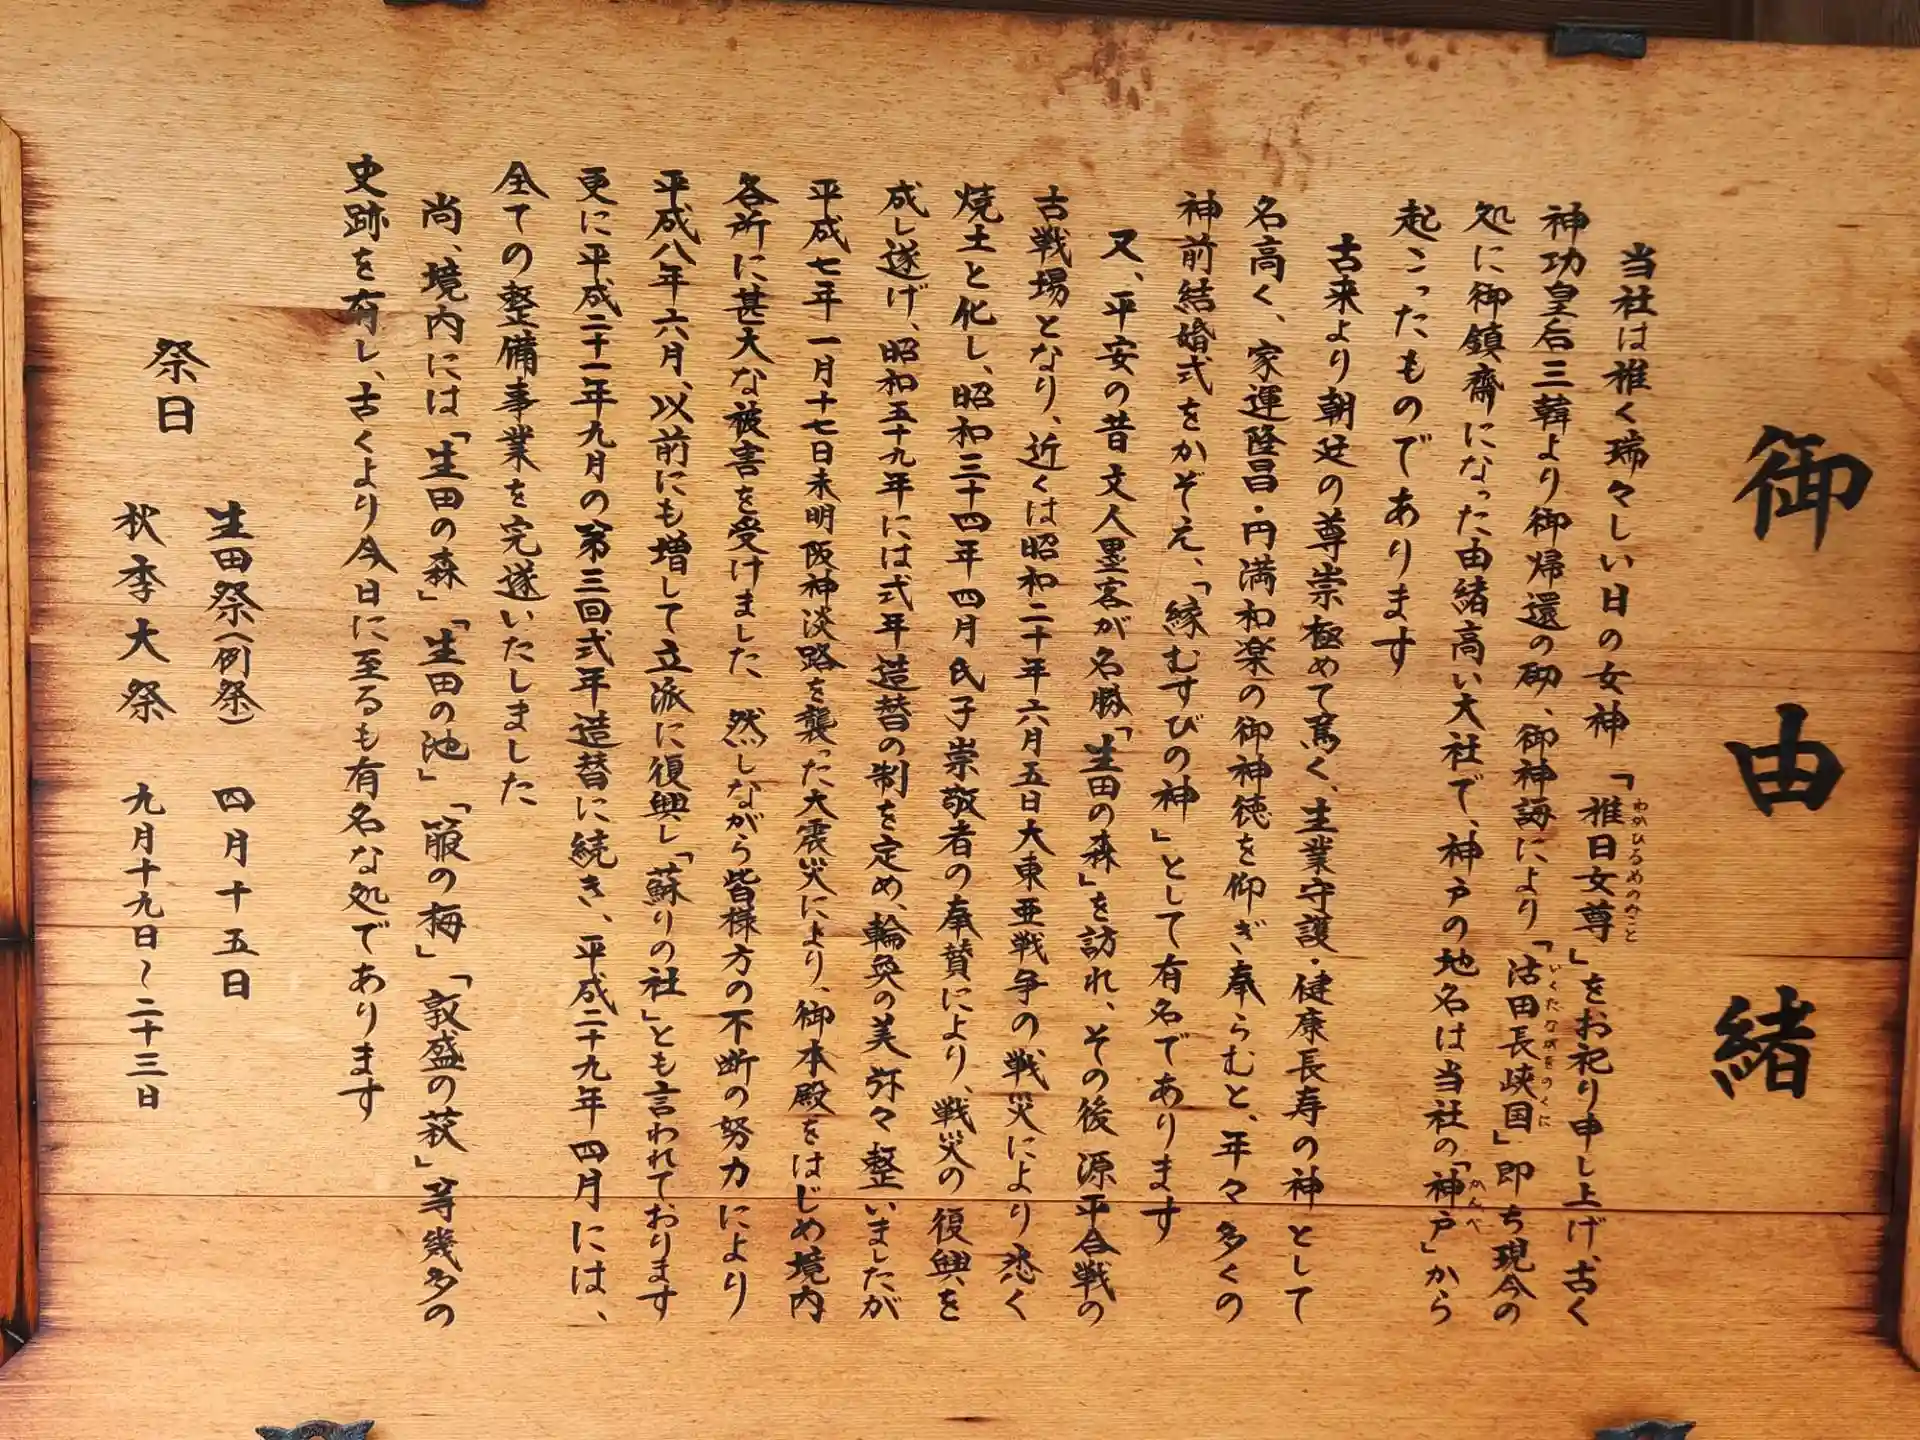 御由緒
当社は稚く瑞々しい日の女神「稚日女尊」をお祀り申し上げ、古く
わかひるめのみこと
神功皇后三韓より御帰還の砌、御神誨により「活田長峡国」即ち現今の
いくたながをのくに
処に御鎮齋になった由緒高い大社で、神戸の地名は当社の「神戸」から
かんべ
起こったものであります
古来より朝廷の尊崇極めて篤く、生業守護・健康長寿の神として
名高く、家運隆昌・円満和楽の御神徳を仰ぎ奉らむと、年々多くの
神前結婚式をかぞえ、「縁むすびの神」として有名であります
又、平安の昔文人墨客が名勝「生田の森」を訪れ、その後源平合戦の
古戦場となり、近くは昭和二十年六月五日大東亜戦争の戦災により悉く
焼土と化し、昭和三十四年四月氏子崇敬者の奉賛により、戦災の復興を
成し遂げ、昭和五十九年には式年造替の制を定め、輪奐の美弥々整いましたが
平成七年一月十七日未明阪神淡路を襲った大震災により、御本殿をはじめ境内
各所に甚大な被害を受けました 然しながら皆様方の不断の努力により
平成八年六月、以前にも増して立派に復興し「蘇りの社」とも言われております
更に平成二十一年九月の第三回式年造替に続き、平成二十九年四月には、
全ての整備事業を完遂いたしました
尚、境内には「生田の森」「生田の池」「箙の梅」「敦盛の萩」等幾多の
史跡を有し、古くより今日に至るも有名な処であります
祭日
生田祭(例祭) 四月十五日
秋季大祭 九月十九日~二十三日